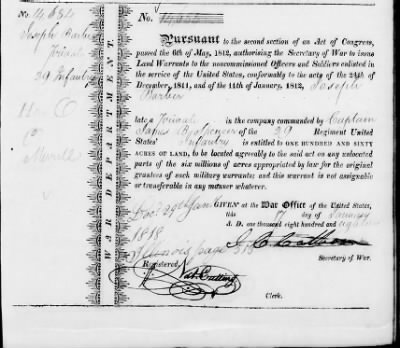 No. 14,654
Joseph Barber
Private
29 Infantry
WAR DEPARTMENT.
No.
Pursuant to the second section of an Act of Congress,
passed the 6th of May, 1812, authorising the Secretary of War to issue
Land Warrants to the noncommissioned Officers and Soldiers enlisted in
the service of the United States, conformably to the acts of the 24th of
December, 1811, and of the 11th of January, 1812, Joseph
Barber
late a Private in the company commanded by Captain
James of the 29 Regiment United
States' Infantry is entitled to ONE HUNDRED AND SIXTY
ACRES OF LAND, to be located agreeably to the said act on any unlocated
parts of the six millions of acres appropriated by law for the original
grantees of such military warrants; and this warrant is not assignable
or transferable in any manner whatever.
GIVEN at the War Office of the United States,
this 17 day of January
A. D. one thousand eight hundred and eighteen
1818
Illinois page 313
J. C. Calhoun
Secretary of War.
Registered,
Clerk.